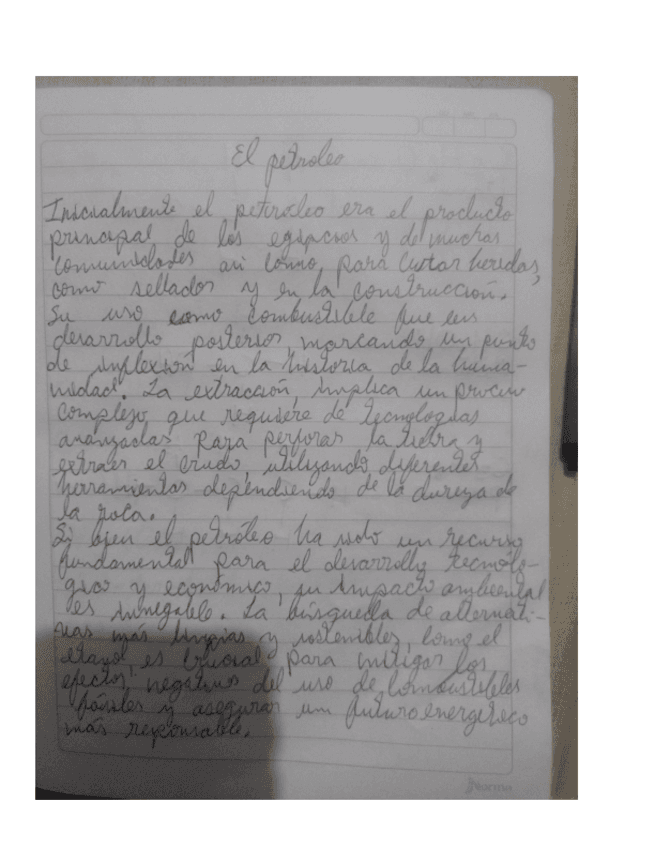 El petroleo
Inicialmente el petroleo era el producto
principal de los egipcios y de muchas
comunidades asi como, para curar heridas,
como sellador y en la construcción.
Su uso como combustible fue un
desarrollo posterior, marcando un punto
de inflexión en la historia de la huma-
nidad. La extracción, implica un proceso
complejo que requiere de tecnologias
avanzadas para perforar la tierra y
extraer el crudo, utilizando diferentes
herramientas dependiendo de la dureza de
la roca.
Si bien el petróleo ha sido un recurso
fundamental para el desarrollo tecnoló-
gico y económico, su impacto ambiental
es innegable. La búsqueda de alternati-
vas más limpias y sostenibles, como el
etanol, es crucial para mitigar los
efectos negativos del uso de combustibles
fósiles y asegurar un futuro energetico
más responsable.
Norma